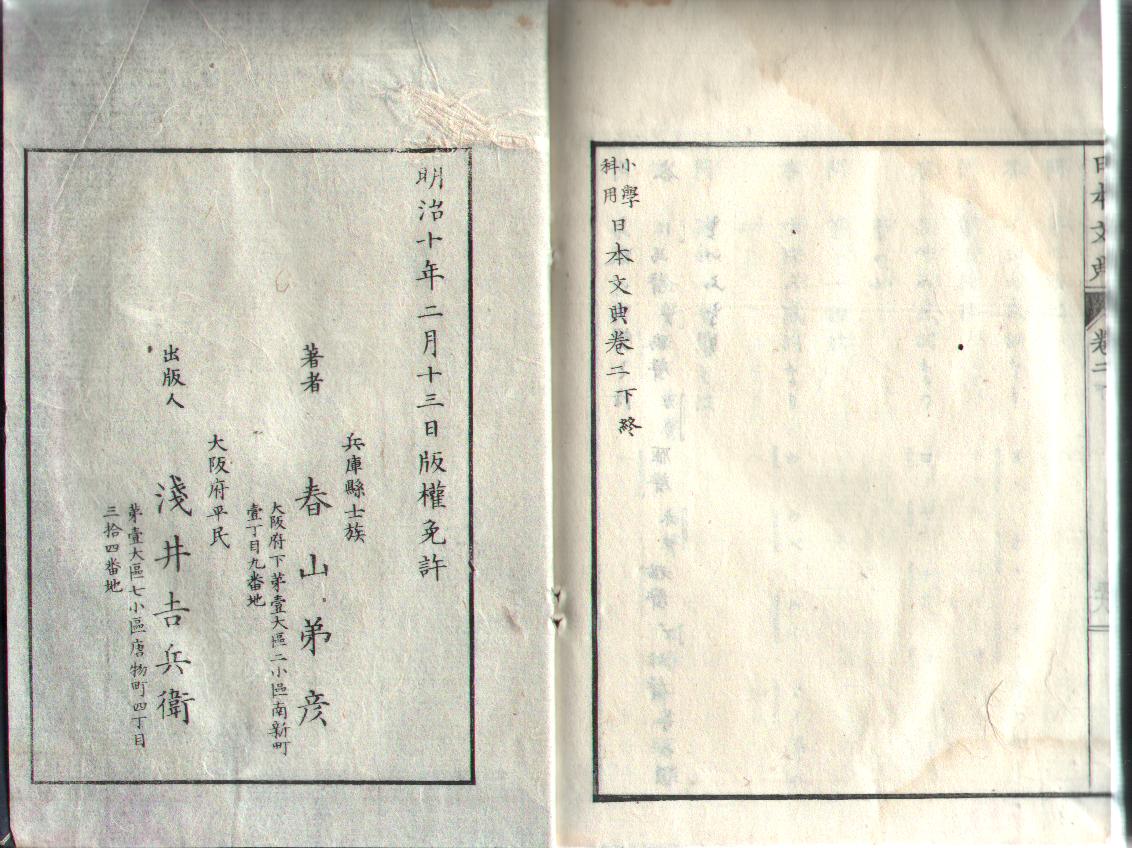 日本文典
卷二下
小學
科用
日本文典卷二下終
明治十年二月十三日版權免許
兵庫縣士族
著者　春山弟彦
大阪府下第壹大區二小區南新町
壹丁目九番地
大阪府平民
出版人　淺井吉兵衛
第壹大區七小區唐物町四丁目
三拾四番地